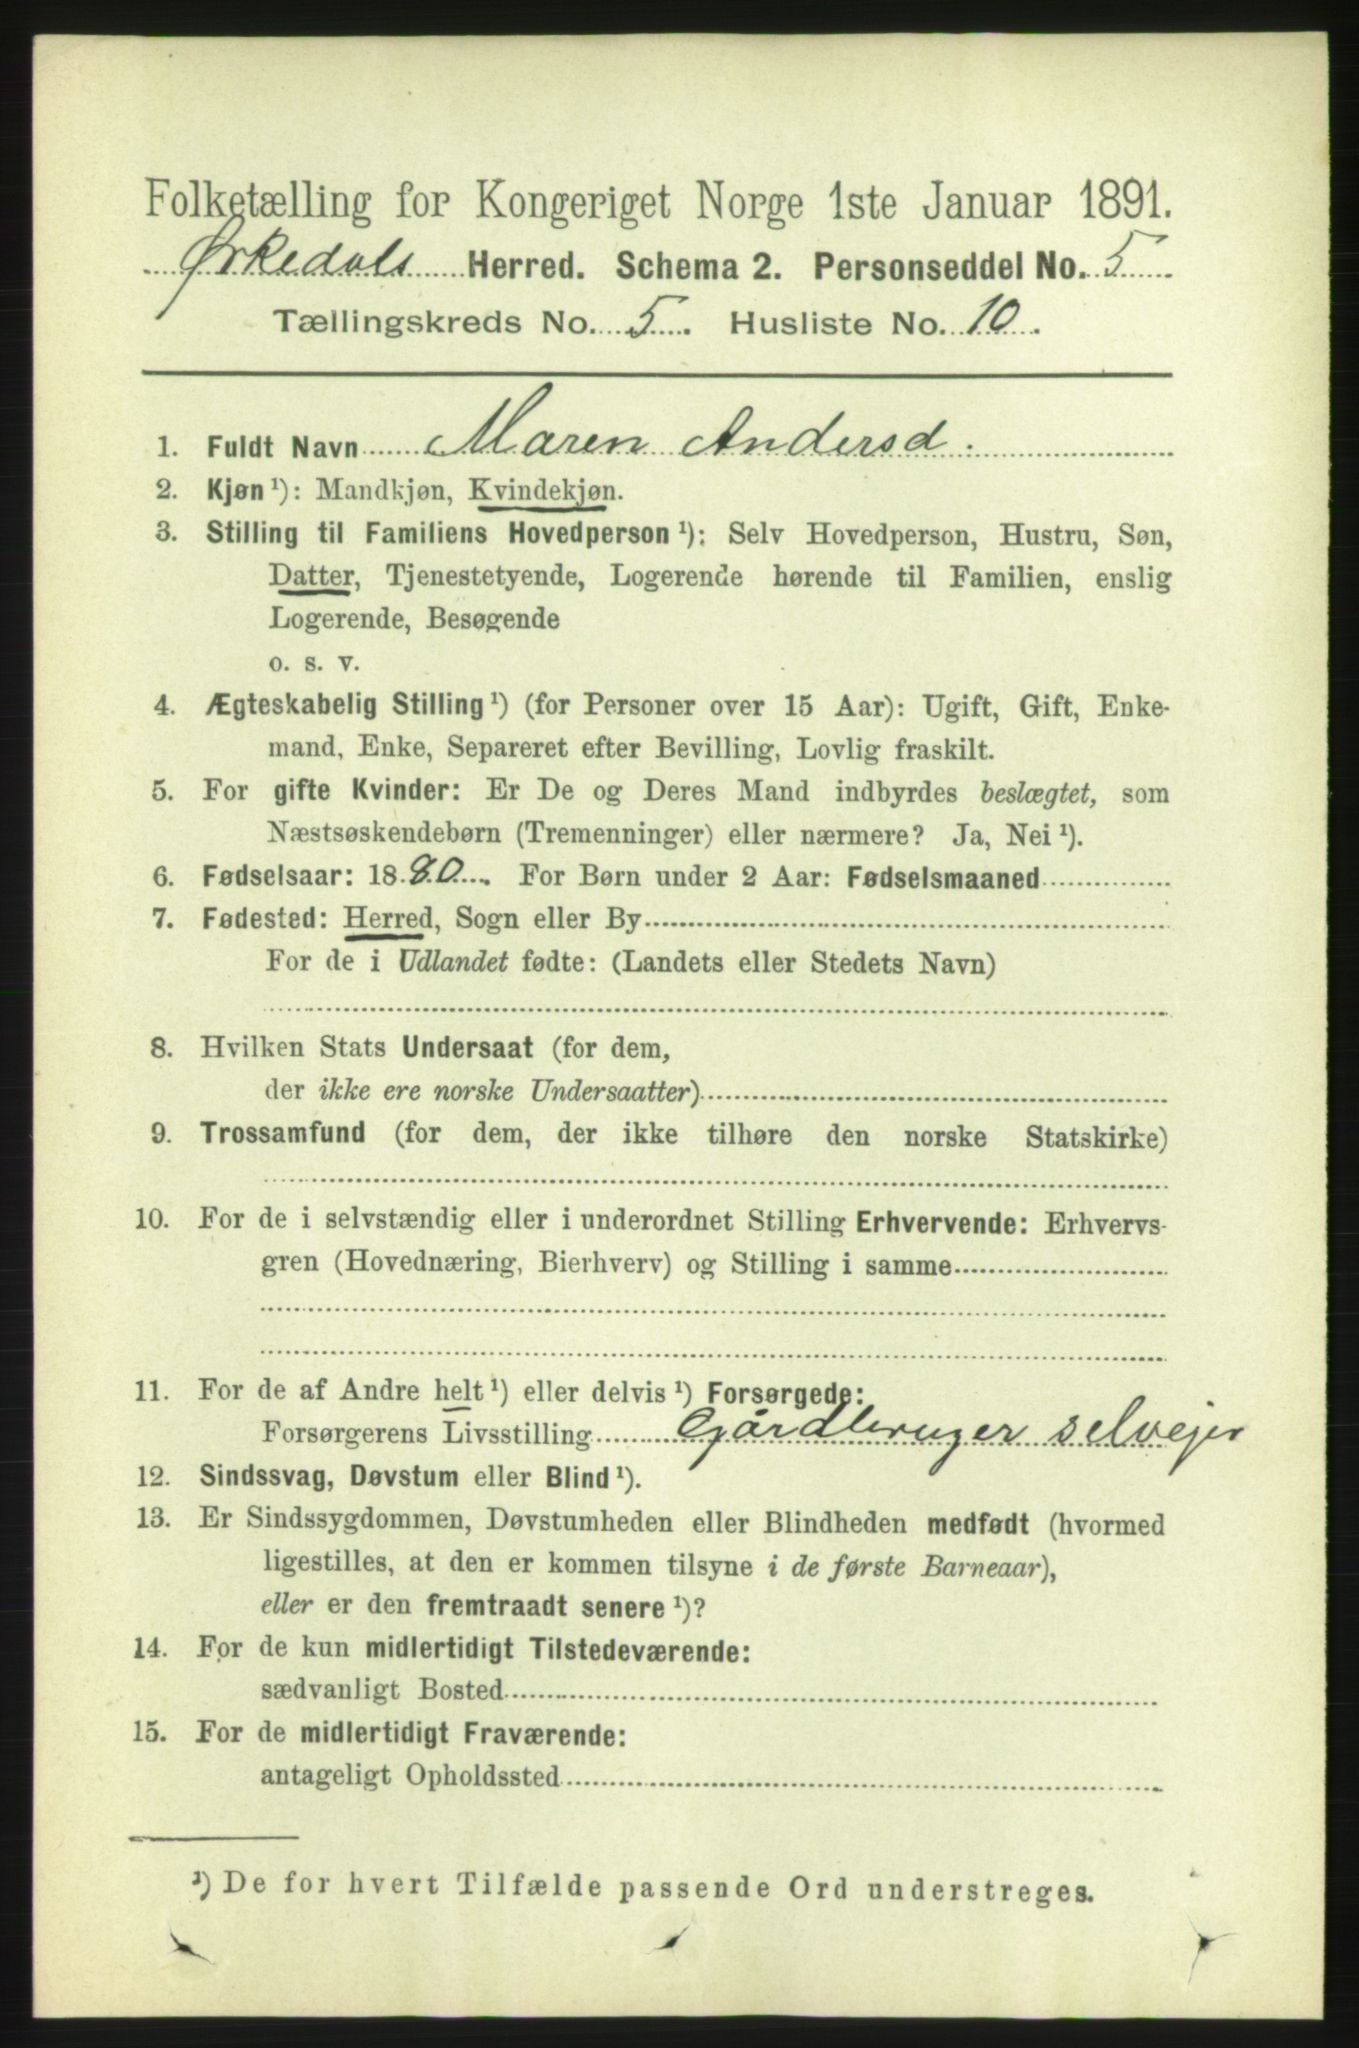 Folketælling for Kongeriget Norge 1ste Januar 1891.
Ørkedals Herred. Schema 2. Personseddel No. 5
Tællingskreds No. 5. Husliste No. 10.
1. Fuldt Navn Maren Andersd.
2. Kjøn ¹): Mandkjøn, Kvindekjøn.
3. Stilling til Familiens Hovedperson ¹): Selv Hovedperson, Hustru, Søn,
Datter, Tjenestetyende, Logerende hørende til Familien, enslig
Logerende, Besøgende
o. s. v.
4. Ægteskabelig Stilling ¹) (for Personer over 15 Aar): Ugift, Gift, Enke-
mand, Enke, Separeret efter Bevilling, Lovlig fraskilt.
5. For gifte Kvinder: Er De og Deres Mand indbyrdes beslægtet, som
Næstsøskendebørn (Tremenninger) eller nærmere? Ja, Nei ¹).
6. Fødselsaar: 1880. For Børn under 2 Aar: Fødselsmaaned
7. Fødested: Herred, Sogn eller By
For de i Udlandet fødte: (Landets eller Stedets Navn)
8. Hvilken Stats Undersaat (for dem,
der ikke ere norske Undersaatter)
9. Trossamfund (for dem, der ikke tilhøre den norske Statskirke)
10. For de i selvstændig eller i underordnet Stilling Erhvervende: Erhvervs-
gren (Hovednæring, Bierhverv) og Stilling i samme
11. For de af Andre helt ¹) eller delvis ¹) Forsørgede:
Forsørgerens Livsstilling Gårdbruger selvejer
12. Sindssvag, Døvstum eller Blind ¹).
13. Er Sindssygdommen, Døvstumheden eller Blindheden medfødt (hvormed
ligestilles, at den er kommen tilsyne i de første Barneaar),
eller er den fremtraadt senere ¹)?
14. For de kun midlertidigt Tilstedeværende:
sædvanligt Bosted
15. For de midlertidigt Fraværende:
antageligt Opholdssted
¹) De for hvert Tilfælde passende Ord understreges.